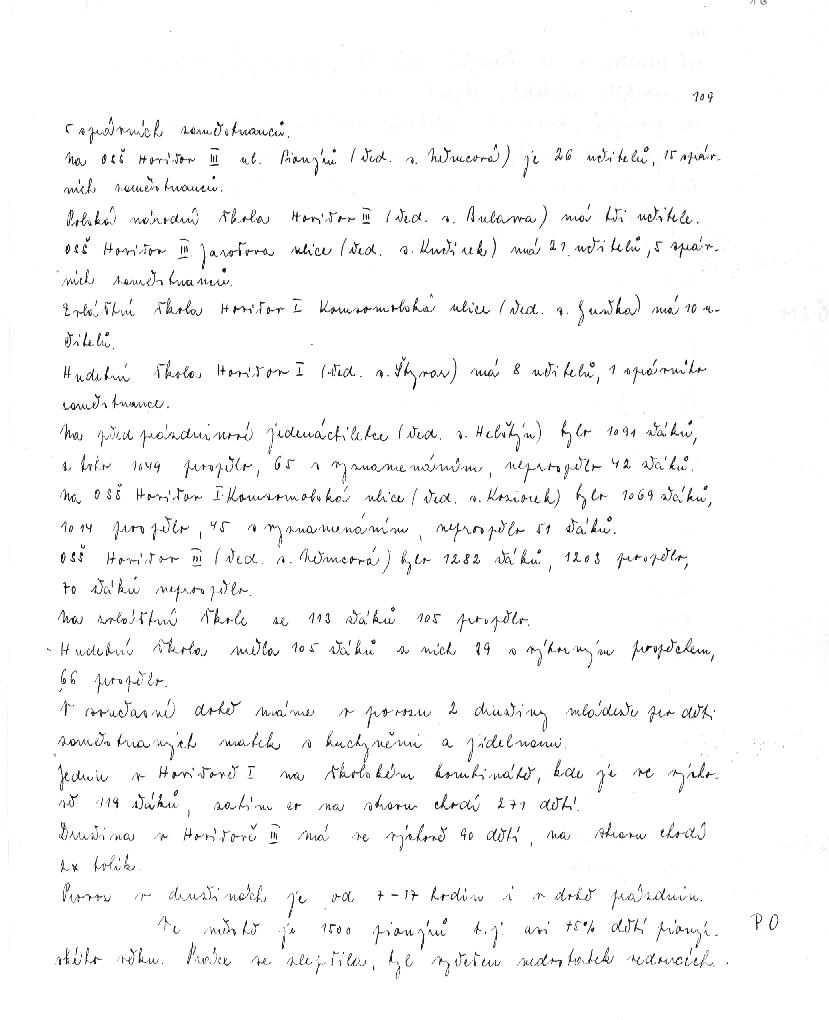 109
5 správních zaměstnanců.
Na OSŠ Havířov III ul. Pionýrů (řed. s. Němcová) je 26 učitelů, 15 správ-
ních zaměstnanců.
Polská národní škola Havířov III (řed. s. Bulawa) má tři učitele.
OSŠ Havířov III Jarošova ulice (řed. s. Kudírek) má 21 učitelů, 5 správ-
ních zaměstnanců.
Zvláštní škola Havířov I Komsomolská ulice (řed. s. Guňka) má 10 u-
čitelů.
Hudební škola Havířov I (řed. s. Štyrar) má 8 učitelů, 1 správního
zaměstnance.
Na před prázdninové jedenáctiletce (řed. s. Helštýn) bylo 1091 žáků,
z toho 1049 prospělo, 65 s vyznamenáním, neprospělo 42 žáků.
Na OSŠ Havířov I Komsomolská ulice (řed. s. Koziorek) bylo 1069 žáků,
1014 prospělo, 45 s vyznamenáním, neprospělo 51 žáků.
OSŠ Havířov III (řed. s. Němcová) bylo 1282 žáků, 1203 prospělo,
70 žáků neprospělo.
Na zvláštní škole se 113 žáků 105 prospělo.
Hudební škola měla 105 žáků z nich 39 s výborným prospěchem,
66 prospělo.
V současné době máme v provozu 2 družiny mládeže pro děti
zaměstnaných matek s kuchyněmi a jídelnami.
Jednu v Havířově I na školském kombinátě, kde je ve výcho-
vě 119 žáků, zatím co na stravu chodí 271 dětí.
Družina v Havířově III má ve výchově 90 dětí, na stravu chodí
2x tolik.
Provoz v družinách je od 7-17 hodin i v době prázdnin.
Ve městě je 1500 pionýrů t.j. asi 75% dětí pionýr-
ského věku. Práce se zlepšila, byl vyřešen nedostatek vedoucích.
PO